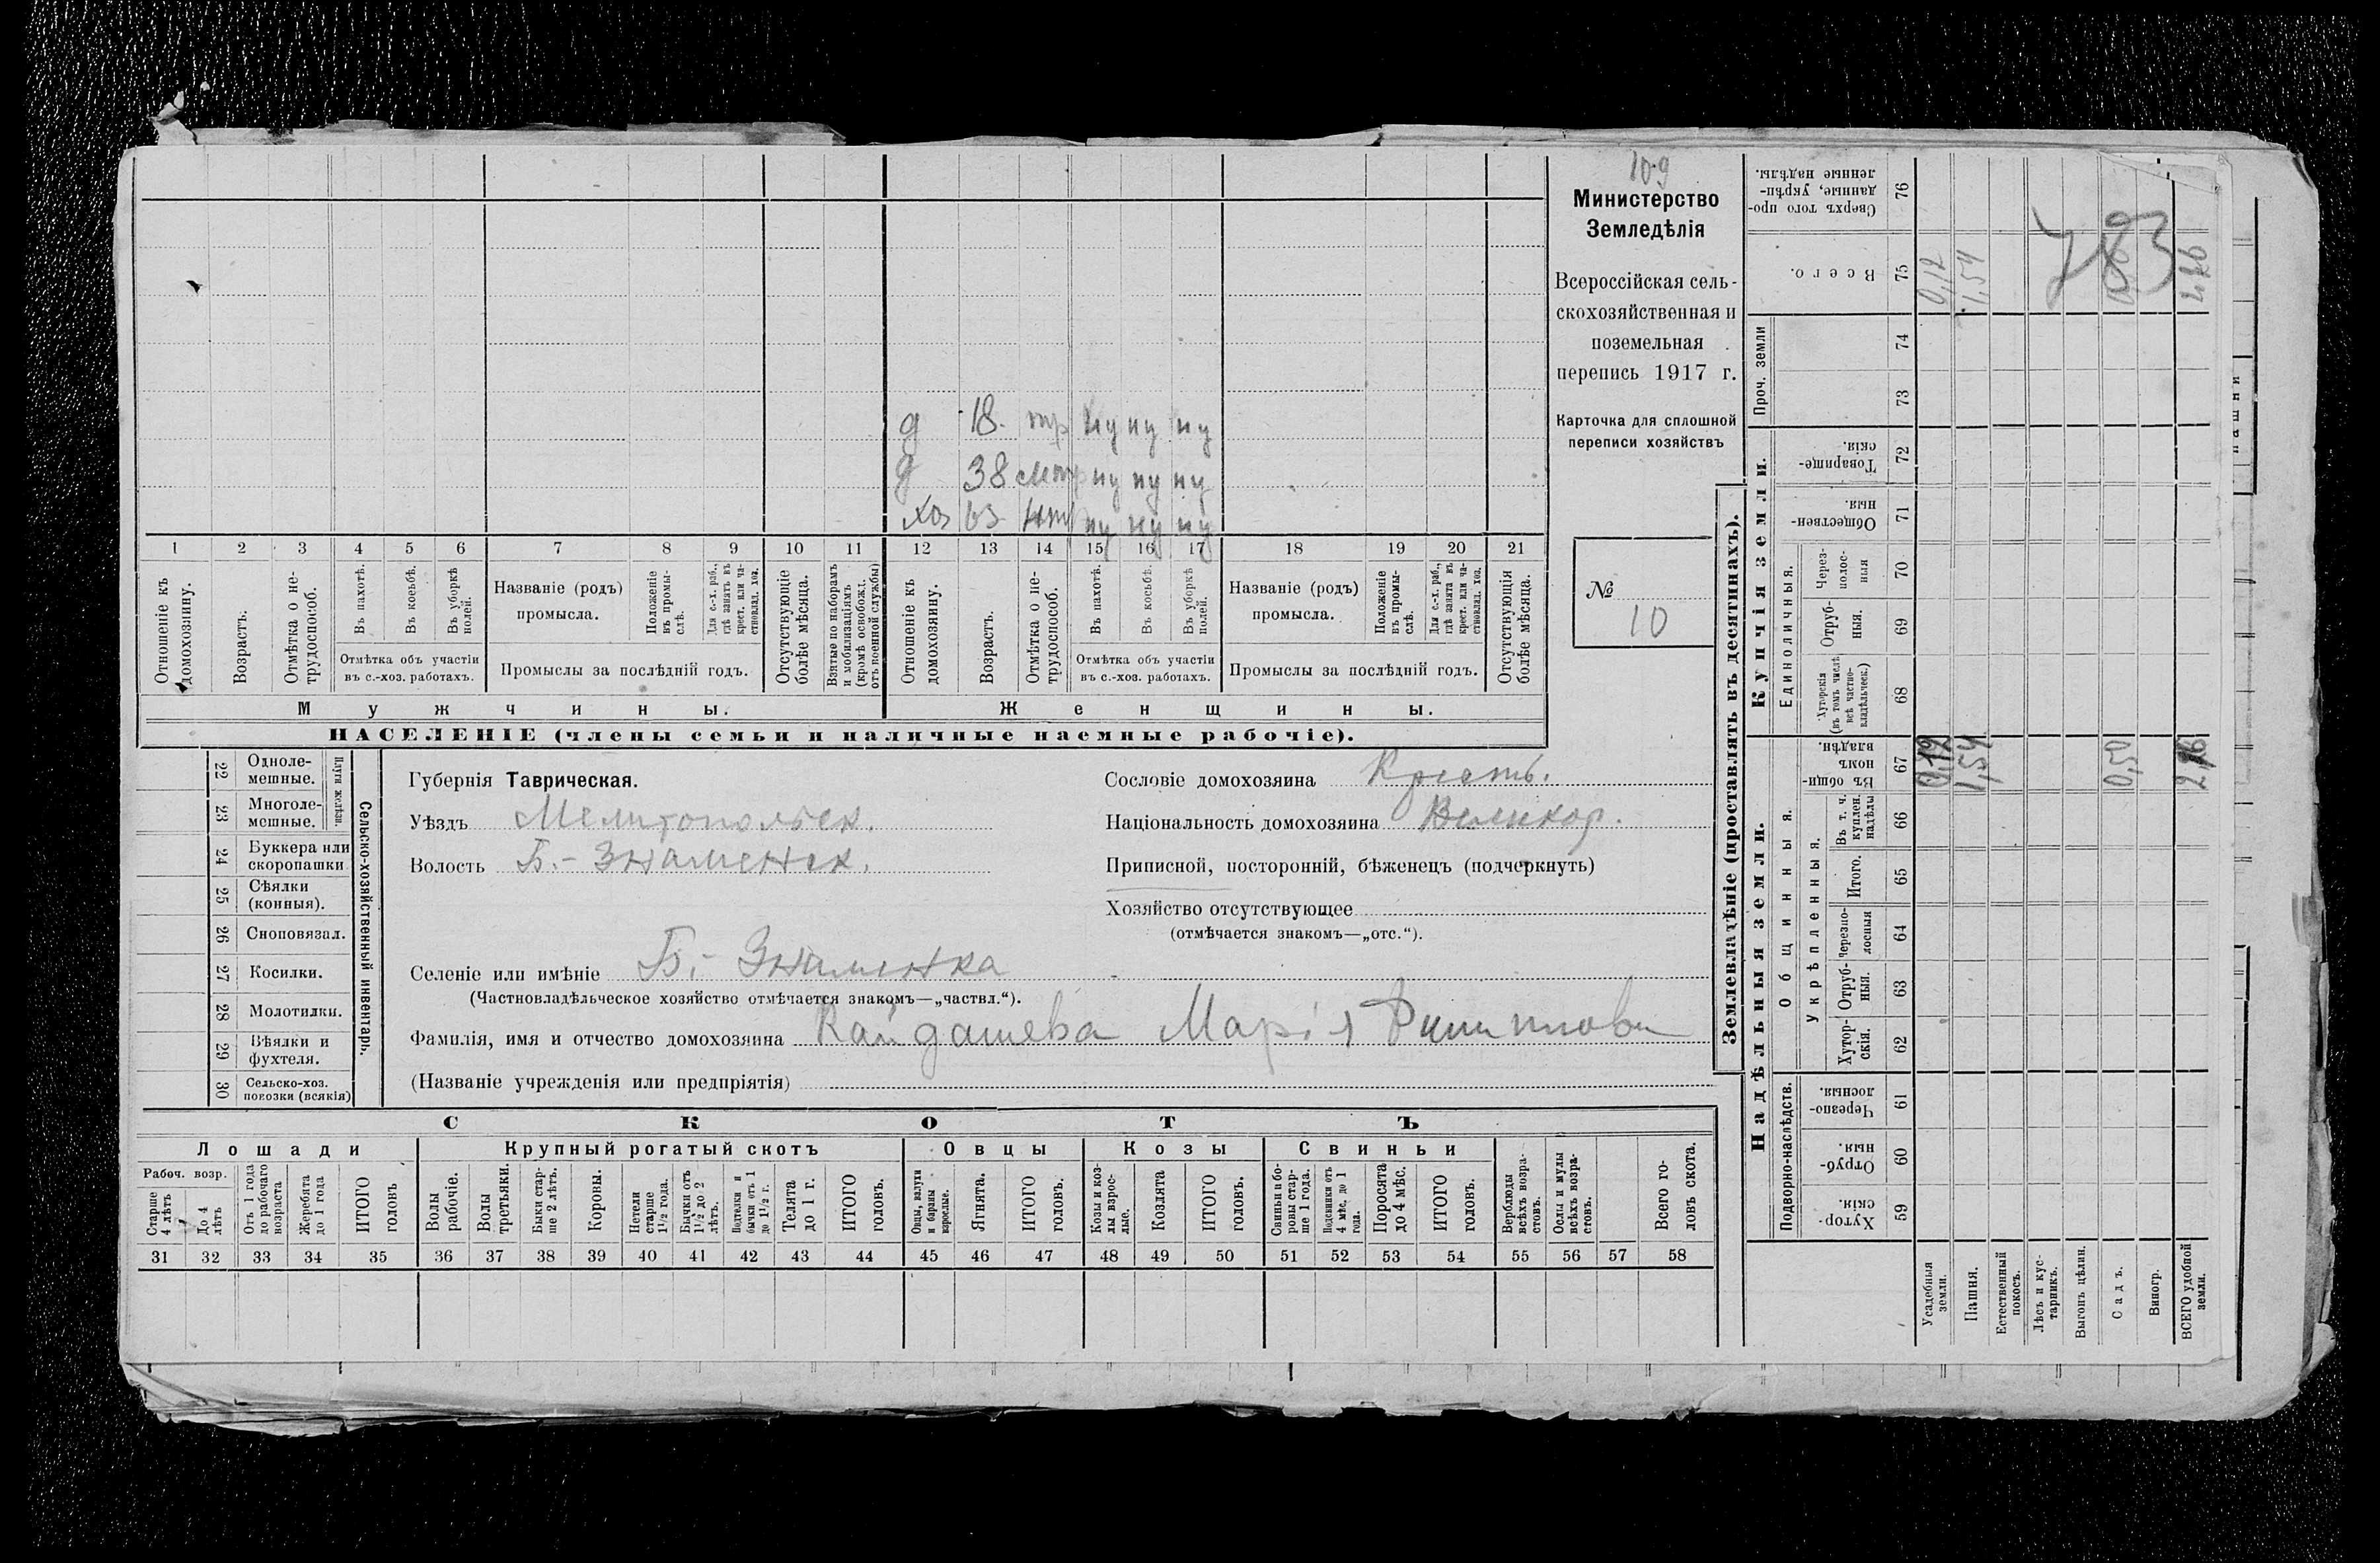 109
Министерство
Земледѣлія
Всероссійская сель-
скохозяйственная и
поземельная
перепись 1917 г.
Карточка для сплошной
переписи хозяйствъ
№
10
д 18 тр ну ну ну
д 38 ну ну ну
хоз 63 ну ну ну
1 2 3 4 5 6 7 8 9 10 11 12 13 14 15 16 17 18 19 20 21
Отношеніе къ домохозяину.
Возрастъ.
Отмѣтка о не-трудоспособ.
Въ пахотѣ.
Въ косьбѣ.
Въ уборкѣ полей.
Отмѣтка объ участіи
въ с.-хоз. работахъ.
Названіе (родъ)
промысла.
Положеніе въ промы-слѣ.
Для с.-х. раб., гдѣ занятъ въ крест. или ча-стновлад. хоз.
Промыслы за послѣдній годъ.
Отсутствующіе болѣе мѣсяца.
Взятые по наборамъ и мобилизаціямъ (кромѣ освобожд. отъ военной службы)
Отношеніе къ домохозяину.
Возрастъ.
Отмѣтка о не-трудоспособ.
Въ пахотѣ.
Въ косьбѣ.
Въ уборкѣ полей.
Отмѣтка объ участіи
въ с.-хоз. работахъ.
Названіе (родъ)
промысла.
Положеніе въ промы-слѣ.
Для с.-х. раб., гдѣ занята въ крест. или ча-стновлад. хоз.
Промыслы за послѣдній годъ.
Отсутствующія болѣе мѣсяца.
Мужчины.
Женщины.
НАСЕЛЕНІЕ (члены семьи и наличные наемные рабочіе).
22 Одноле-мешные.
23 Многоле-мешные.
Плуги желѣзн.
24 Буккера или скоропашки
25 Сѣялки (конныя).
26 Сноповязал.
27 Косилки.
28 Молотилки.
29 Вѣялки и фухтеля.
30 Сельско-хоз. повозки (всякія)
Сельско-хозяйственный инвентарь.
Губернія Таврическая.
Уѣздъ Мелитопольск.
Волость Б.-Знаменск.
Селеніе или имѣніе Б.-Знаменка
(Частновладѣльческое хозяйство отмѣчается знакомъ—„частвл.“).
Фамилія, имя и отчество домохозяина Кайдашева Марія Филиппова
(Названіе учрежденія или предпріятія)
Сословіе домохозяина Крестъ.
Національность домохозяина Великор.
Приписной, посторонній, бѣженецъ (подчеркнуть)
Хозяйство отсутствующее
(отмѣчается знакомъ—„отс.“).
СКОТЪ
Лошади
Крупный рогатый скотъ
Овцы
Козы
Свиньи
Рабоч. возр.
Старше 4 лѣтъ
До 4 лѣтъ
Отъ 1 года до рабочаго возраста
Жеребята до 1 года
ИТОГО головъ
Волы рабочіе.
Волы третьяки.
Быки стар-ше 2 лѣтъ.
Коровы.
Нетели старше 1½ года.
Бычки отъ 1½ до 2 лѣтъ.
Подтелки и бычки отъ 1 до 1½ г.
Телята до 1 г.
ИТОГО головъ.
Овцы, валухи и бараны взрослые.
Ягнята.
ИТОГО головъ.
Козы и коз-лы взрос-лые.
Козлята
ИТОГО головъ.
Свиньи и бо-ровы стар-ше 1 года.
Подсвинки отъ 4 мѣс. до 1 года.
Поросята до 4 мѣс.
ИТОГО головъ.
Верблюды всѣхъ возра-стовъ.
Ослы и мулы всѣхъ возра-стовъ.
Всего го-ловъ скота.
31 32 33 34 35 36 37 38 39 40 41 42 43 44 45 46 47 48 49 50 51 52 53 54 55 56 57 58
Землевладѣніе (проставлять въ десятинахъ).
Надѣльныя земли.
Купчія земли.
Проч. земли
Подворно-наслѣдств.
Общинныя.
Укрѣпленныя.
Единоличныя.
Хутор-скія. 59
Отруб-ныя. 60
Черезпо-лосныя. 61
Хутор-скія. 62
Отруб-ныя. 63
Черезпо-лосныя 64
Итого. 65
Въ т. ч. куплен. надѣлы 66
Въ общин-номъ владѣн. 67
Хуторскія (въ томъ числѣ всѣ частно-владѣльческ.) 68
Отруб-ныя. 69
Через-полос-ныя 70
Обществен-ныя 71
Товарище-скія. 72
73
74
Всего. 75
Сверхъ того про-данные, укрѣп-ленные надѣлы. 76
Усадебныя земли. 0,12 0,12
Пашня. 1,54 1,54
Естественный покосъ.
Лѣсъ и кус-тарникъ.
Выгонъ цѣлин.
Садъ. 0,50
Виногр.
ВСЕГО удобной земли. 2,16
783
пашни